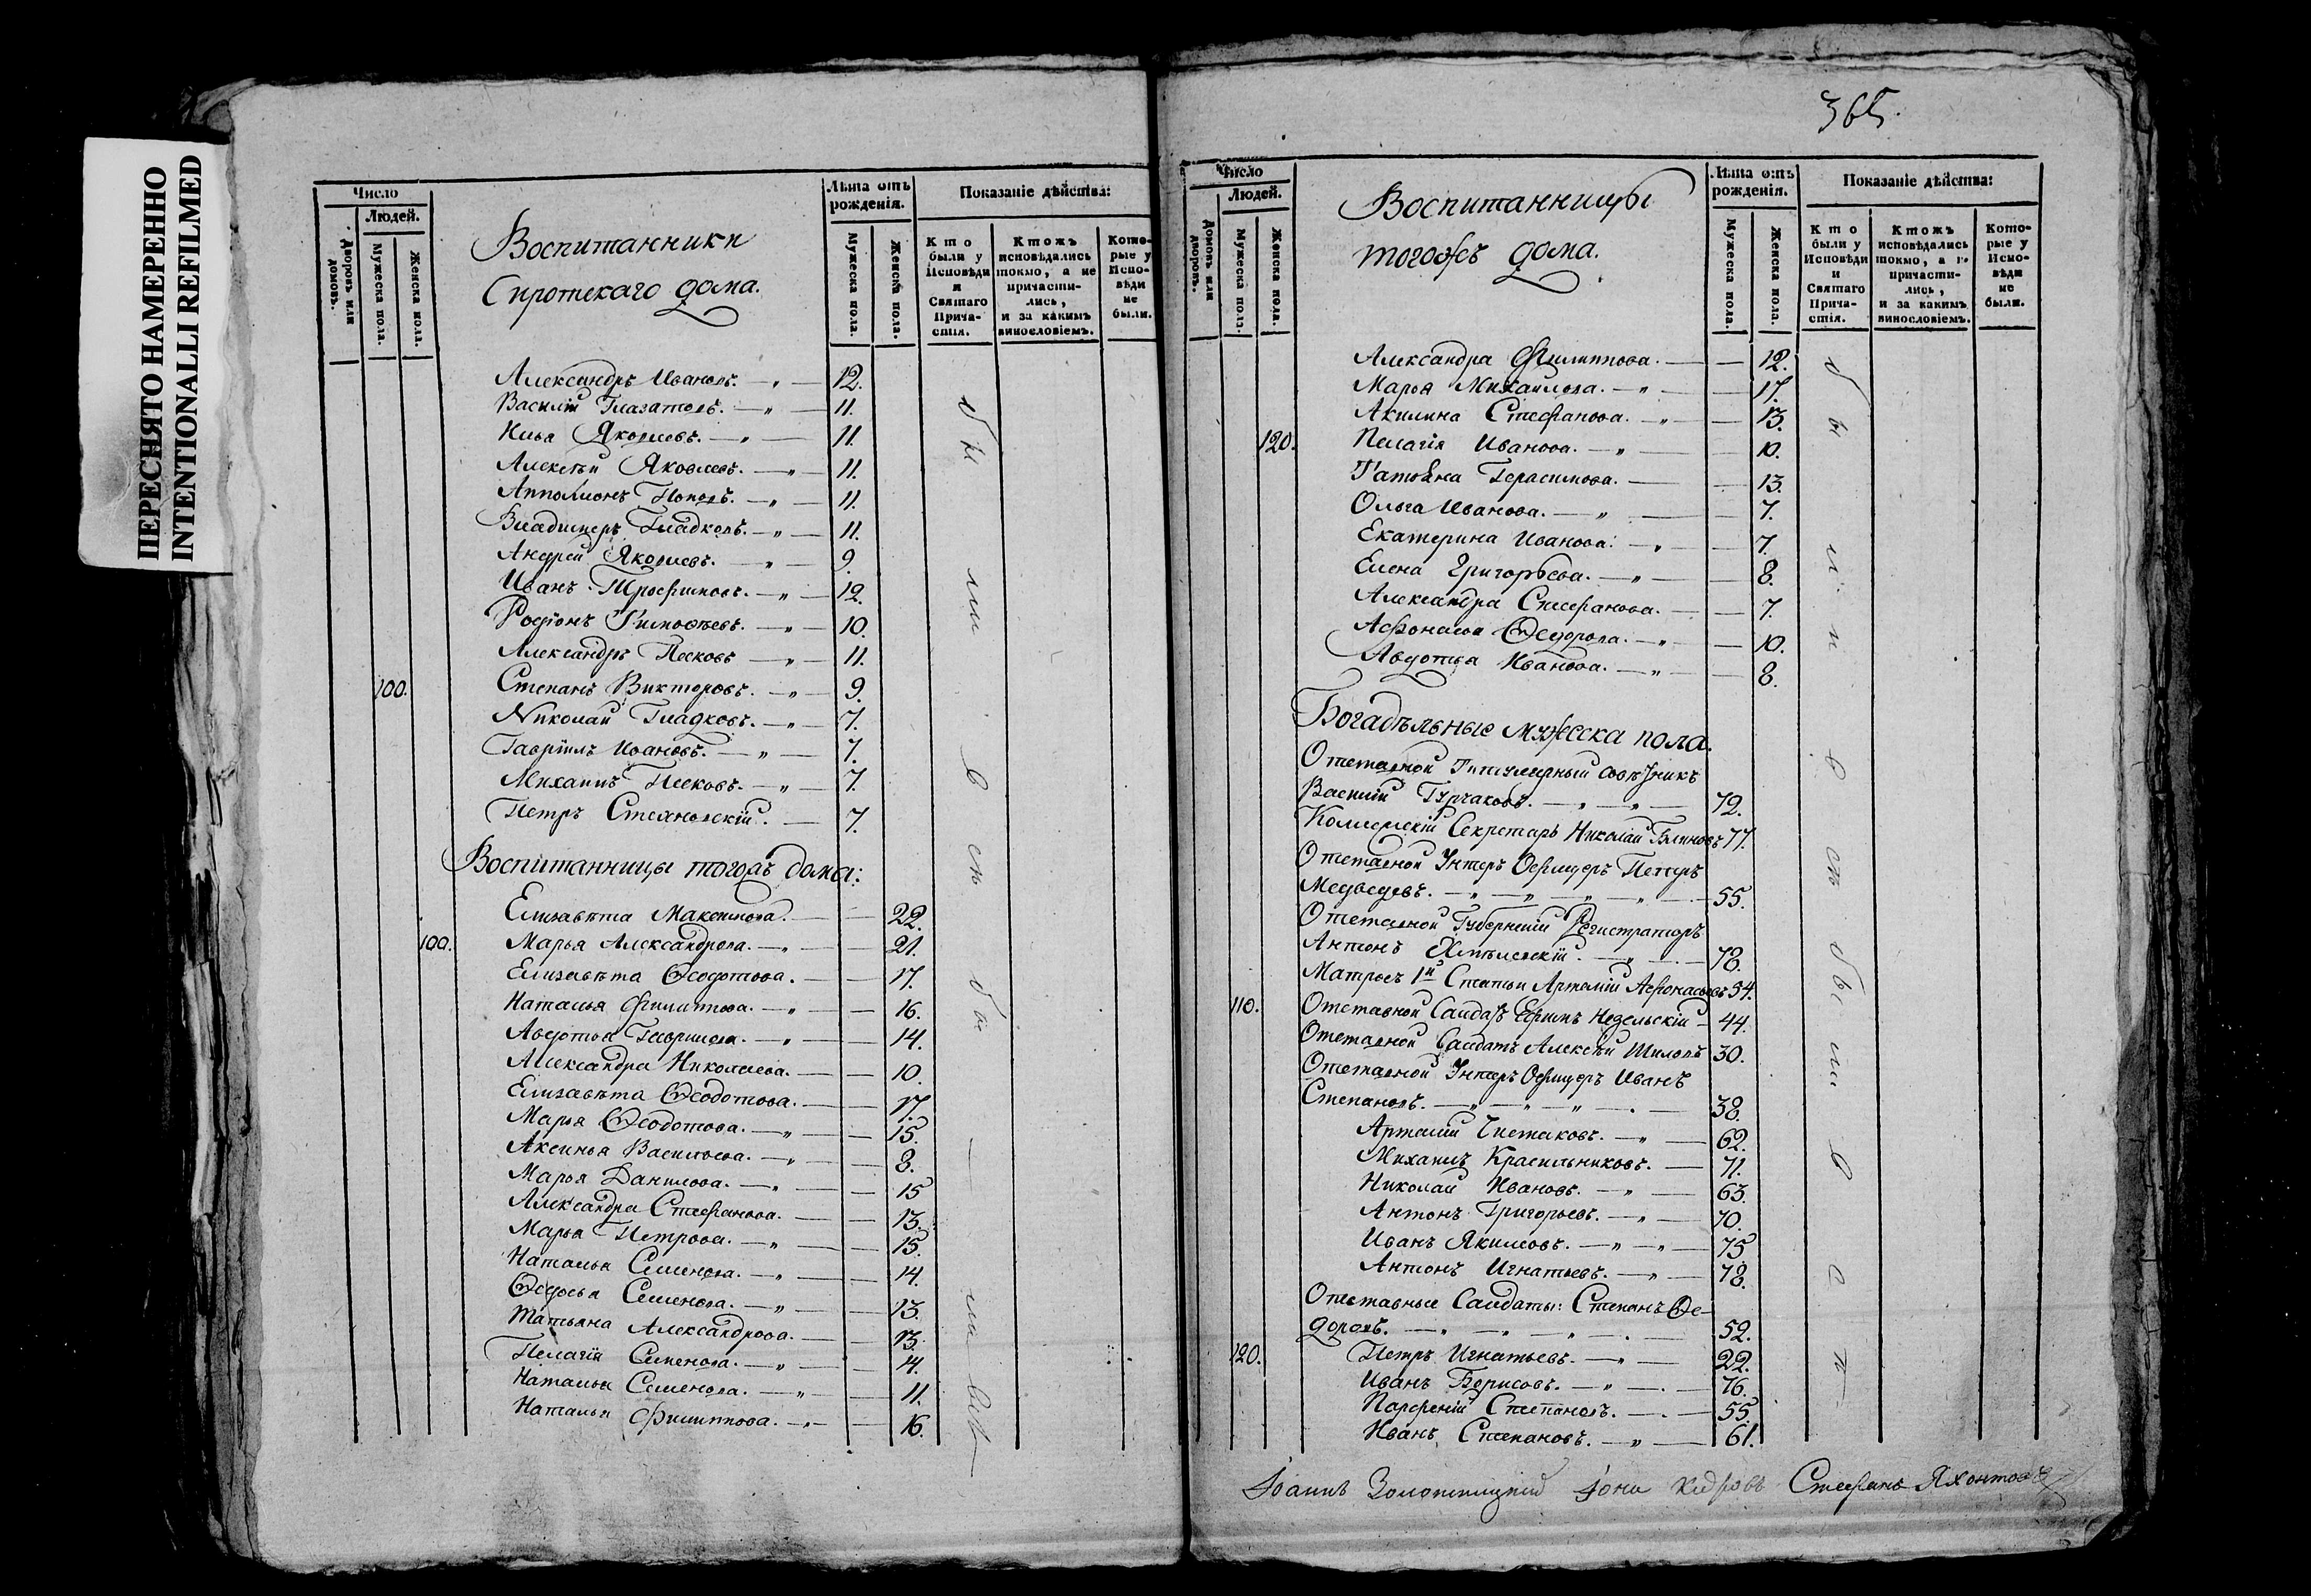 ПЕРЕСНЯТО НАМЕРЕННО
INTENTIONALLI REFILMED
Число
Людей.
Дворовъ или домовъ.
Мужеска пола.
Женска пола.
Воспитанники
Сиротскаго дома.
Лѣта отъ рожденія.
Мужеска пола.
Женска пола.
Показаніе дѣйства:
Кто были у Исповѣди и Святаго Прича-стія.
Ктожъ исповѣдались токмо, а не причасти-лись, и за какимъ винословіемъ.
Кото-рые у Испо-вѣди не были.
Александръ Ивановъ. — 12.
Василій — 11.
Илья Яковлевъ. — 11.
Алексѣй Яковлевъ. — 11.
Апполионъ Поповъ. — 11.
Владимеръ Гладковъ. — 11.
Андрей Яковлевъ. — 9.
Иванъ Трофимовъ. — 12.
Родіонъ Тимофѣевъ. — 10.
Александръ Песковъ — 11.
100. Степанъ Викторовъ. — 9.
Николай Гладковъ. — 7.
Гавріилъ Ивановъ. — 7.
Михаилъ Песковъ. — 7.
Петръ — 7.
Воспитанницы тогожъ дома:
Елизавѣта Максимова. — 22.
100. Марья Александрова. — 21.
Елизавѣта Ѳеодотова. — 17.
Наталья Филиппова. — 16.
Авдотья Гаврилова. — 14.
Александра Николаева. — 10.
Елизавѣта Ѳеодотова. — 17.
Марья Ѳеодотова. — 15.
Аксинья Васильева. — 8.
Марья Данилова. — 15
Александра Стефанова. — 13.
Марья Петрова. — 15.
Наталья Семенова. — 14.
Ѳедосья Семенова. — 13.
Татьяна Александрова. — 13.
Пелагія Семенова. — 14.
Наталья Семенова. — 11.
Наталья Филиппова. — 16.
365.
Число
Людей.
Домовъ или дворовъ.
Мужеска пола.
Женска пола.
Воспитанницы
тогожъ дома.
Лѣта отъ рожденія.
Мужеска пола.
Женска пола.
Показаніе дѣйства:
Кто были у Исповѣди и Святаго Прича-стія.
Ктожъ исповѣдались токмо, а не причасти-лись, и за какимъ винословіемъ.
Кото-рые у Испо-вѣди не были.
Александра Филиппова. — 12.
Марья Михайлова. — 17.
Акилина Стефанова. — 13.
120. Пелагія Иванова. — 10.
Татьяна Герасимова. — 13.
Ольга Иванова. — 7.
Екатерина Иванова. — 7.
Елена Григорьева. — 8.
Александра Стефанова. — 7.
Афонасья Ѳедорова. — 10.
Авдотья Иванова. — 8.
Богадѣльные мужеска пола.
Отставной Титулярный совѣтникъ
Василій — 72.
Коллежскій Секретарь Николай Блиновъ 77.
Отставной Унтеръ Офицеръ Петръ
Медведевъ. — 55.
Отставной Губернскій Регистраторъ
Антонъ — 78.
Матросъ 1й Статьи Артемій Афонасьевъ 54.
110. Отставной Салдатъ Ефимъ Недельскій — 44.
Отставной Салдатъ Алексѣй Шиловъ 30.
Отставной Унтеръ Офицеръ Иванъ
Степановъ. — 38.
Артемій — 62.
Михаилъ Красильниковъ. — 71.
Николай Ивановъ. — 63.
Антонъ Григорьевъ. — 70.
Иванъ Якимовъ. — 75
Антонъ Игнатьевъ. — 78.
Отставные Салдаты: Степанъ Ѳе-
доровъ. — 52.
120. Петръ Игнатьевъ. — 22.
Иванъ Борисовъ. — 76.
Парфеній Степановъ. — 55.
Иванъ Степановъ. — 61.
Іоаннъ Золотицкій Іона Кедровъ Стефанъ Яхонтовъ